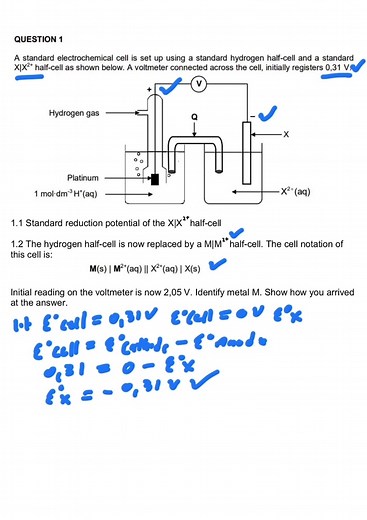 QUESTION 1
A standard electrochemical cell is set up using a standard hydrogen half-cell and a standard
X|X²⁺ half-cell as shown below. A voltmeter connected across the cell, initially registers 0,31 V.
V
+
-
Hydrogen gas
Q
X
Platinum
1 mol·dm⁻³ H⁺(aq)
X²⁺(aq)
1.1 Standard reduction potential of the X|X²⁺ half-cell
1.2 The hydrogen half-cell is now replaced by a M|M²⁺ half-cell. The cell notation of
this cell is:
M(s) | M²⁺(aq) || X²⁺(aq) | X(s)
Initial reading on the voltmeter is now 2,05 V. Identify metal M. Show how you arrived
at the answer.
1.1 E°cell = 0,31V E°cell = 0V E°x
E°cell = E°cathode - E°Anode
0,31 = 0 - E°x
E°x = - 0,31 V